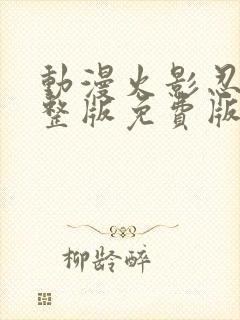 動漫火影忍
整版免費版
柳齡醉